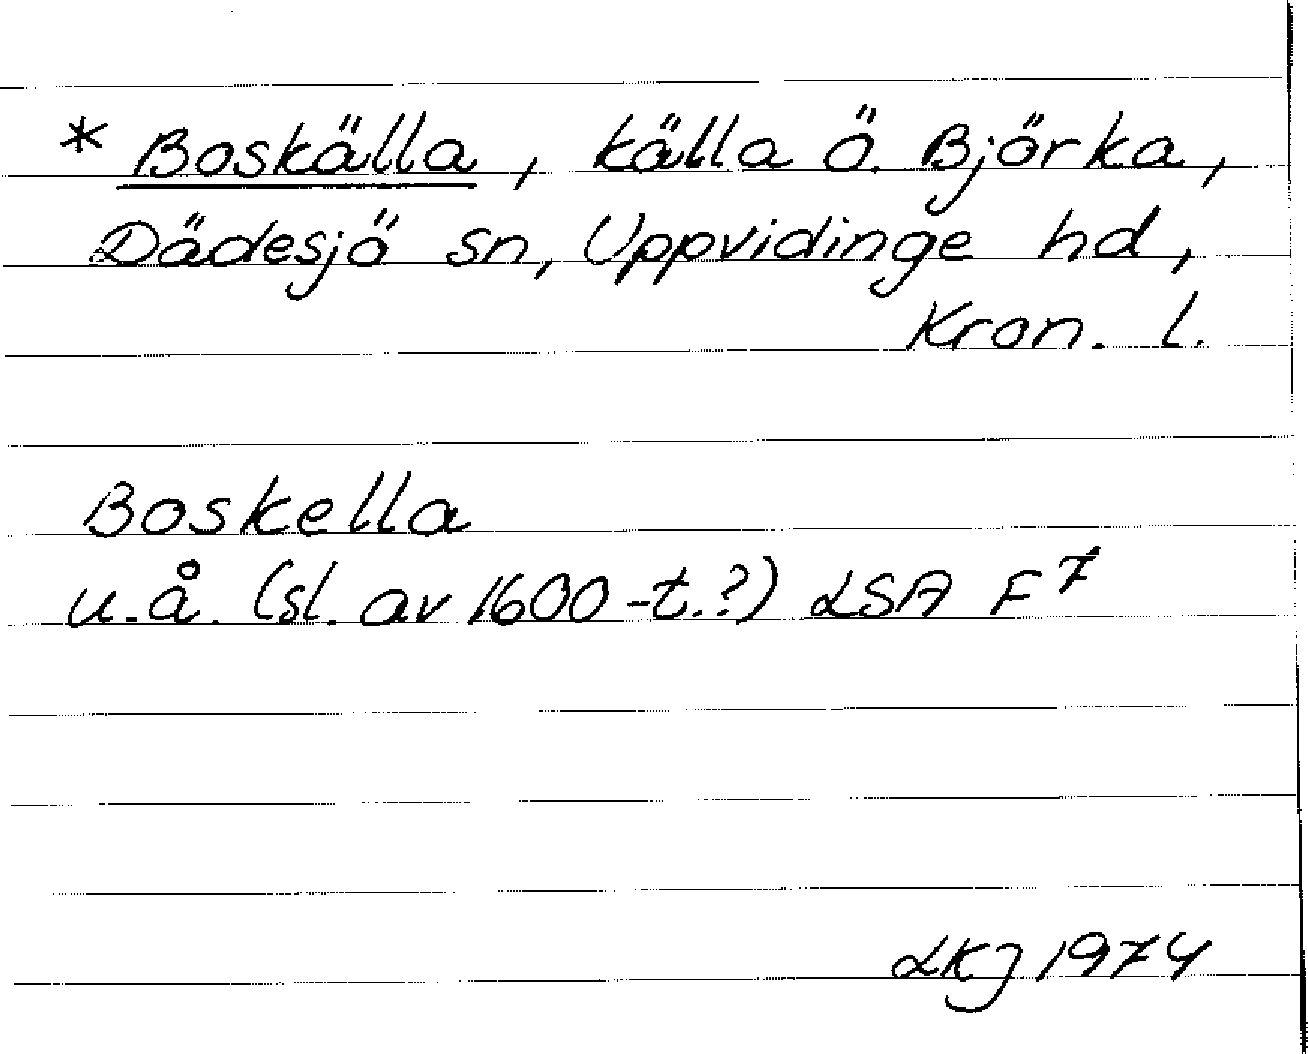 * Boskälla, källa Ö. Björka,
Dädesjö sn, Uppvidinge hd,
Kron. l.
Boskella
u.å. (sl. av 1600-t.?) LSA F7
LKJ 1974